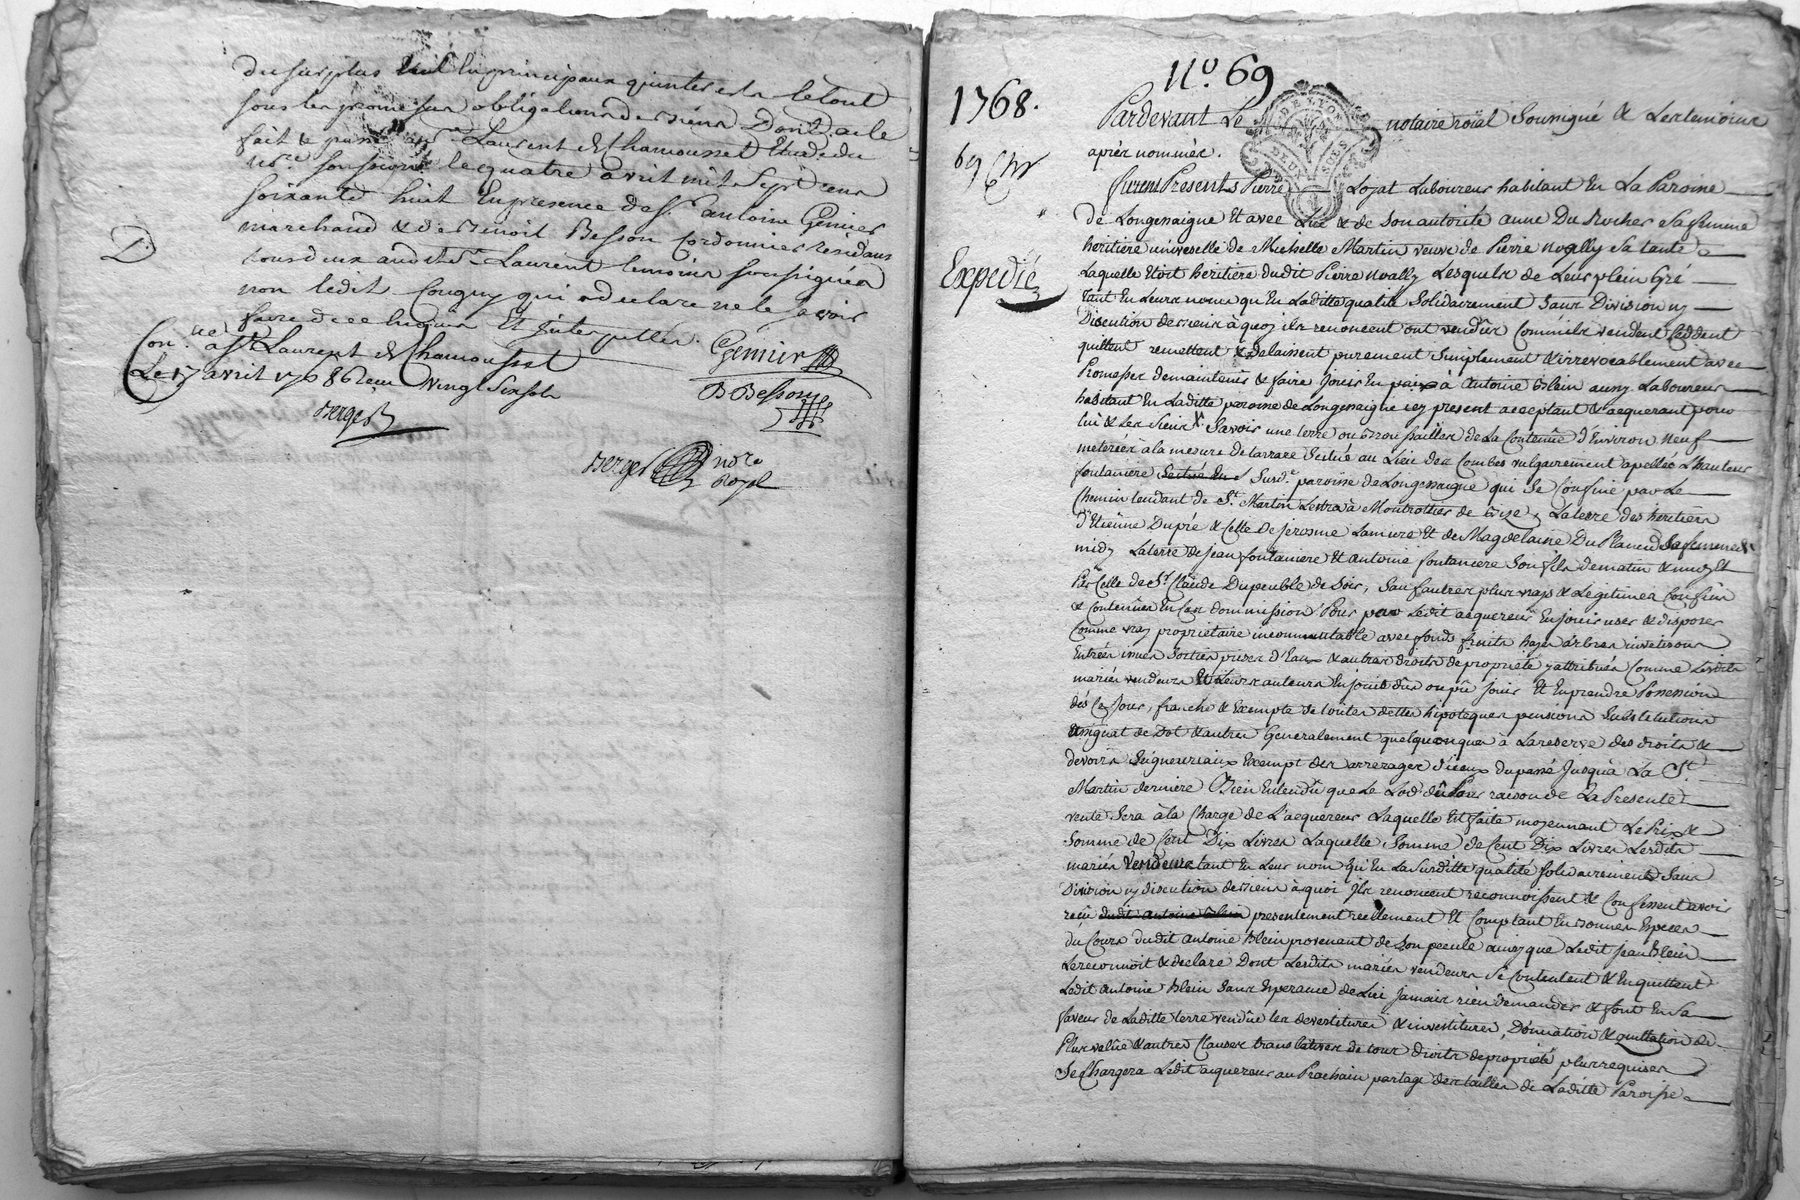 du surplus en principaux
sous les promesses obligations de biens Dont acte
fait & passé a St Laurent de Chamousset Etude du
nore soussigné le quatre avril mil Sept cens
soixante huit En presence de Sr antoine Gemier
marchand & de Benoit Besson Cordonnier residans
tous deux audit St Laurent temoins soussignés
non ledit Cougny qui a declaré ne le scavoir
faire de ce Enquis Et interpellés.
D
Con.né a St Laurent de Chamousset
Le 17 avril 1768 Reçu vingt Six sols
Berger
Gemier
B Besson
Berger nore
Royal
No. 69
1768.
69
Expedié
DE LYON
DEUX SOLS
Pardevant Le notaire roïal Soussigné & Les temoins
après nommés.
furent Presents Pierre Lozat Laboureur habitant En La Paroisse
de Longessaigne Et avec Luÿ & de Son autorité anne Du Rocher Sa femme
heritiere universelle de Michelle Martin veuve de Pierre noally Sa tante
Laquelle Etoit heritiere dudit Pierre noally Lesquels de Leur plein Gré
tant En Leurs noms qu'En Laditte qualité Solidairement Sans Division ny
Discution de biens à quoy ils renoncent ont vendûs Comme ils vendent Ceddent
quittent remettent & delaissent purement Simplement & irrevocablement avec
Promesses de maintenir & faire jouir En paix à Antoine Blein aussy Laboureur
habitant En Laditte paroisse de Longessaigne icy present acceptant & acquerant pour
lui & Les Siens Savoir une terre ou broussailles de La Contenüe d'Environ neuf
meterées à la mesure de Larrare Scitué au Lieu des Combes vulgairement apellés Chauteur
fontaniere Scitué En Susd.e paroisse de Longessaigne qui Se Confine par Le
Chemin tendant de St. Martin Lestra à Montrottier de bize, La terre des heritiers
d'Etienne Dupré & Celle de Jerosme Lamure Et de Magdelaine Du Planeu Sa femme de
midy La terre de Jean fontaniere Et Antoine fontaniere Son fils de matin & une Et
Par Celle de St. Claude Dupeuble de Soir, Sauf autres plus vrays & Legitimes Confins
& Contenües En Cas d'ommission Pour par Ledit acquereur En jouir user & disposer
Comme vray propriétaire incommutable avec fonds fruits hayes arbres
Entrées issues Sorties prises d'Eaux & autres droits de propriété y attribués Comme Lesdits
mariés vendeurs Et Leurs auteurs En jouit dûs ou pû jouir Et En prendre Possession
dés Ce jour, franche & Exempte de toutes dettes hipoteques pensions Substitutions
de Dot & autres Generalement quelquonques à La reserve des droits &
devoirs Seigneuriaux Exempt des arrerages d'iceux du passé jusqu'à La St.
Martin derniere Bien Entendû que Le Lod dû Pour raison de La Presente
vente Sera à la Charge de L'acquereur Laquelle Est faite moyennant Le Prix &
Somme de Cent Dix Livres Laquelle Somme de Cent Dix Livres Lesdits
mariés Vendeurs tant En Leur nom qu'En La Susditte qualité Solidairement Sans
Division ny Discution de biens à quoi Ils renoncent reconnoissent & Confessent avoir
reçû dudit Antoine Blein presentement reellement Et Comptant En bonnes Especes
du Cours dudit Antoine Blein provenant de Son pecule ainsy que Ledit Jean Blein
Le reconnoit & declare Dont Lesdits mariés vendeurs Se Contentent & En quittent
Ledit Antoine Blein Sans Esperance de Lui Jamais rien demander & font En Sa
faveur de Laditte terre vendûe les devestitures & investitures, Donnation & quittation de
Plus value & autres Clauses translatives de tous droits de propriété plus requises
Se Chargera Ledit acquereur au Prochain partage des tailles de Laditte Paroisse